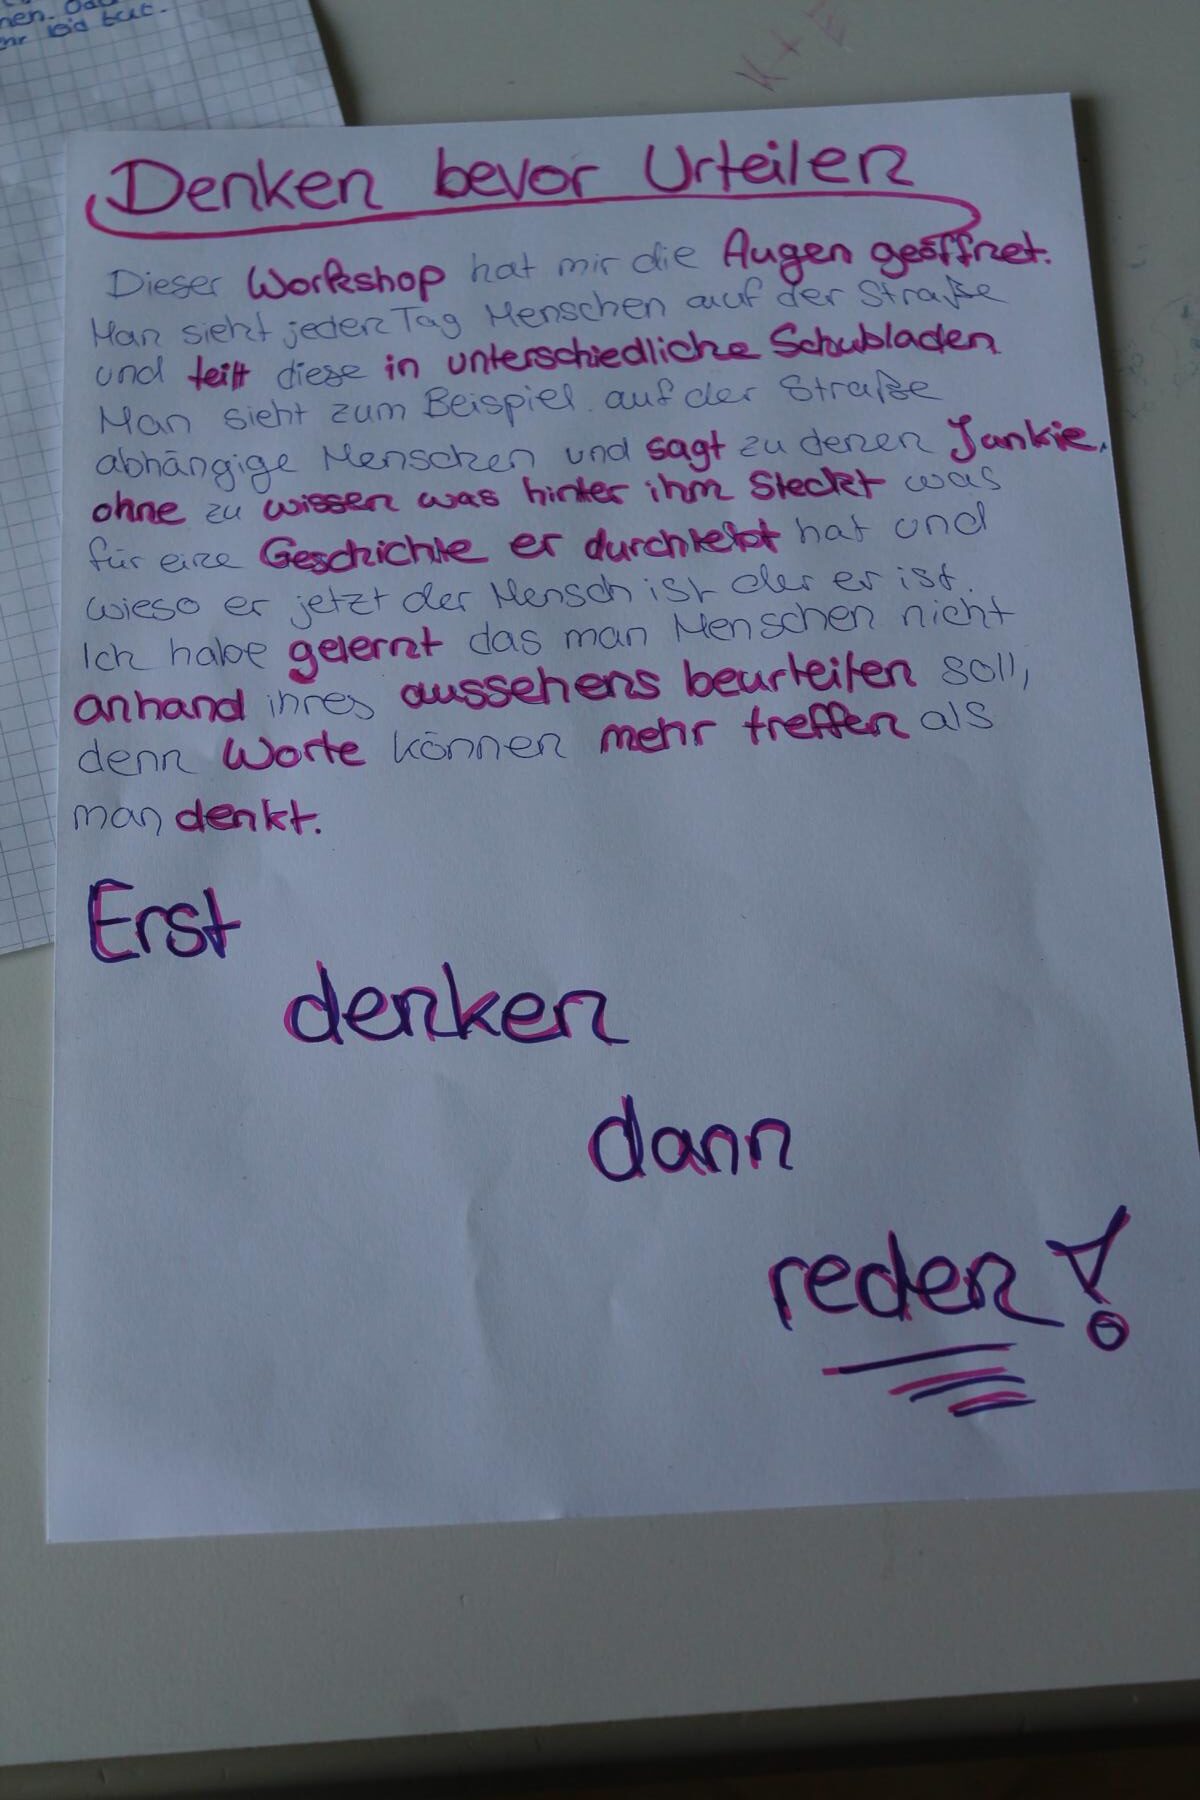 nen.
ihr leid tut.
K + E
Denken bevor Urteilen
Dieser Workshop hat mir die Augen geöffnet.
Man sieht jeden Tag Menschen auf der Straße
und teilt diese in unterschiedliche Schubladen
Man sieht zum Beispiel auf der Straße
abhängige Menschen und sagt zu denen Junkie,
ohne zu wissen was hinter ihm Steckt was
für eine Geschichte er durchlebt hat und
wieso er jetzt der Mensch ist der er ist.
Ich habe gelernt das man Menschen nicht
anhand ihres aussehens beurteilen soll,
denn Worte können mehr treffen als
man denkt.
Erst
denken
dann
reden!